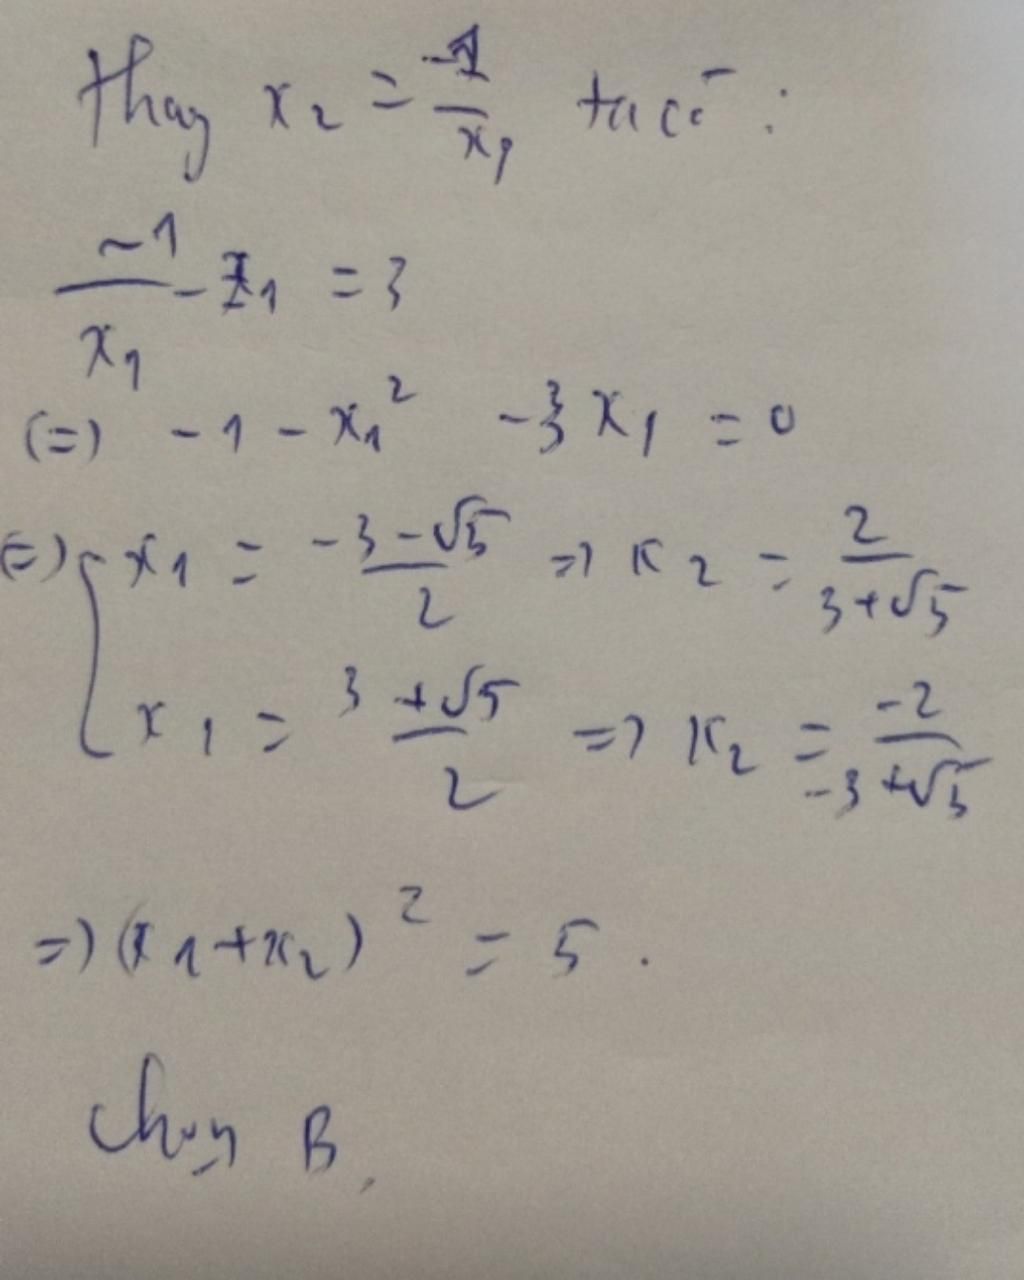 Thay x₂ = -1/x₁ ta có :
-1/x₁ - x₁ = 3
(=) -1 - x₁² - 3x₁ = 0
(=) [ x₁ = (-3-√5)/2 => x₂ = 2/(3+√5)
x₁ = (3+√5)/2 => x₂ = -2/(-3+√5)
=> (x₁+x₂)² = 5 .
Chọn B,